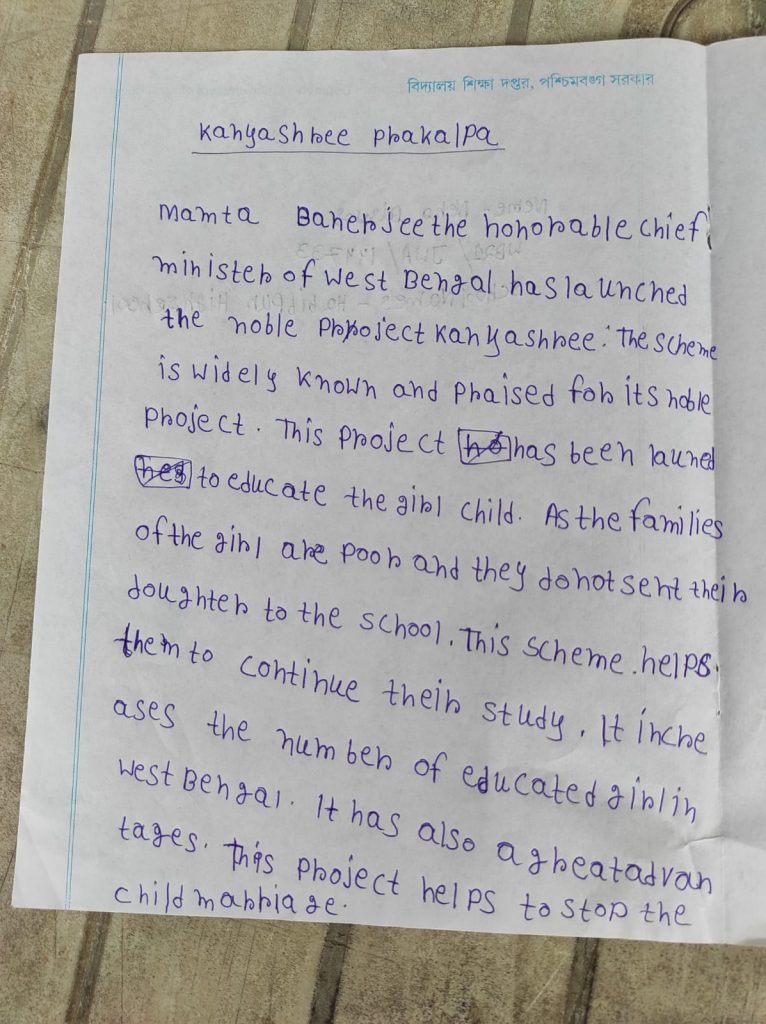 বিদ্যালয় শিক্ষা দপ্তর, পশ্চিমবঙ্গ সরকার
Kanyashree Prakalpa
Mamta Banerjee the honorable chief
minister of West Bengal has launched
the noble Project Kanyashree. The scheme
is widely known and praised for its noble
project. This project has been launed
to educate the girl child. As the families
of the girl are poor and they do not sent their
doughter to the school. This scheme helps
them to continue their study. It incre
ases the number of educated girl in
West Bengal. It has also a great advan
tages. This project helps to stop the
child marriage.